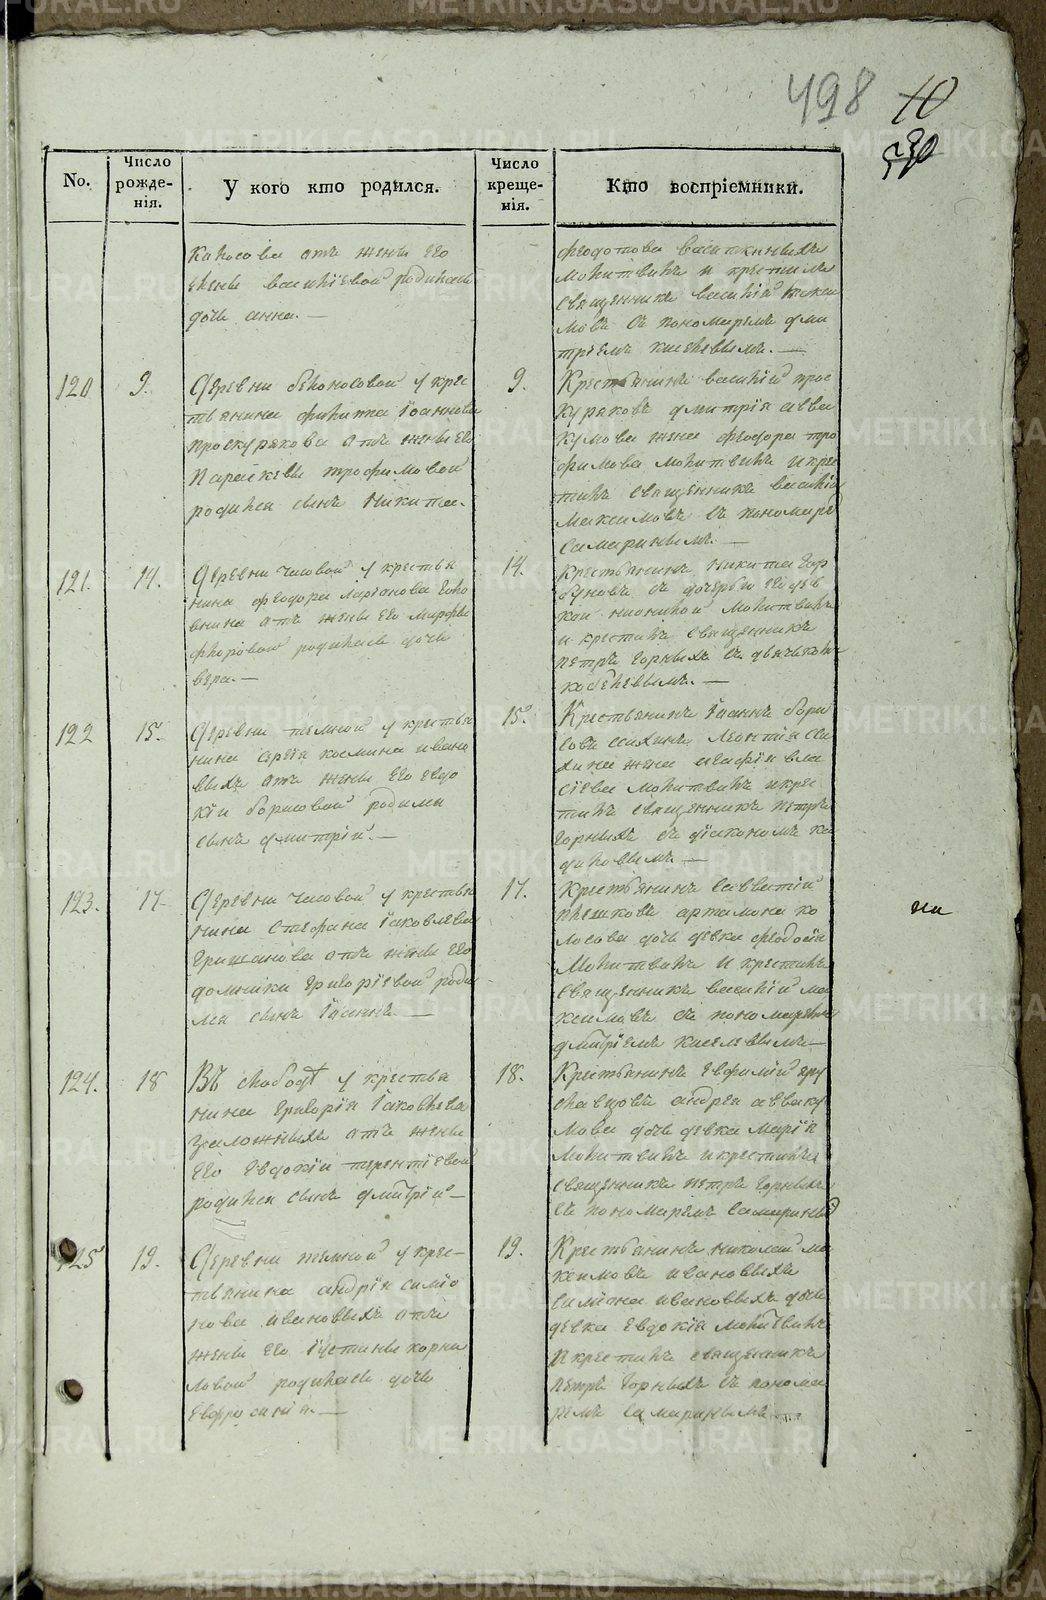 498 10
530
No.
Число рожде-нія.
У кого кто родился.
Число креще-нія.
Кто воспріемники.
отъ жены его
василіевой родилась
дочь анна. —
молитвилъ и крестилъ
священникъ василій
мовъ съ пономаремъ дми
тріемъ киселевымъ. —
120
9.
Деревни белоносовой у крес
тьянина филипа іоаннова
проскурякова отъ жены его
параскевы трофимовой
родился сынъ никита.
9.
Крестьянинъ василій прос
куряковъ дмитрія авва
кумова жена феодора тро
фимова молитвилъ и крес
тилъ священникъ василій
максимовъ съ пономаремъ
самаринымъ. —
121.
14.
Деревни часовой у крестья
нина феодора ларіонова
отъ жены его марфы
родилась дочь
вера. —
14.
Крестьянинъ никита гор
буновъ съ дочерью его дев
кой молитвилъ
и крестилъ священникъ
петръ горныхъ съ дьячкомъ
122
15.
Деревни темной у крестья
нина сергія космина ивано
выхъ отъ жены его евдо
кіи борисовой родился
сынъ дмитрій. —
15.
Крестьянинъ іоаннъ бори
совъ леонтія
жена агафія вла
сіева молитвилъ и крес
тилъ священникъ петръ
горныхъ съ діакономъ ка
диловымъ —
123.
17.
Деревни часовой у крестья
нина стефана іаковлева
отъ жены его
домники григоріевой роди
лся сынъ іоаннъ. —
17.
Крестьянинъ савватій
пешковъ артамона ко
лосова дочь девка феодосія
молитвилъ и крестилъ
священникъ василій ма
ксимовъ съ пономаремъ
дмитріемъ киселевымъ —
на
124.
18
Въ слободѣ у крестья
нина григорія іаковлева
заложныхъ отъ жены
его евдокіи терентіевой
родился сынъ дмитрій —
18.
Крестьянинъ евфимій
андрея авваку
мова дочь девка марія
молитвилъ и крестилъ
священникъ петръ горныхъ
съ пономаремъ самаринымъ
125
19.
Деревни темной у крес-
тьянина андрія симіо
нова ивановыхъ отъ
жены его іустины корни
ловой родилась дочь
евфросинія. —
19.
Крестьянинъ николай ма
ксимовъ ивановыхъ
симіона ивановыхъ дочь
девка евдокія молитвилъ
и крестилъ священникъ
петръ горныхъ съ понома
ремъ самаринымъ —
METRIKI.GASO-URAL.RU